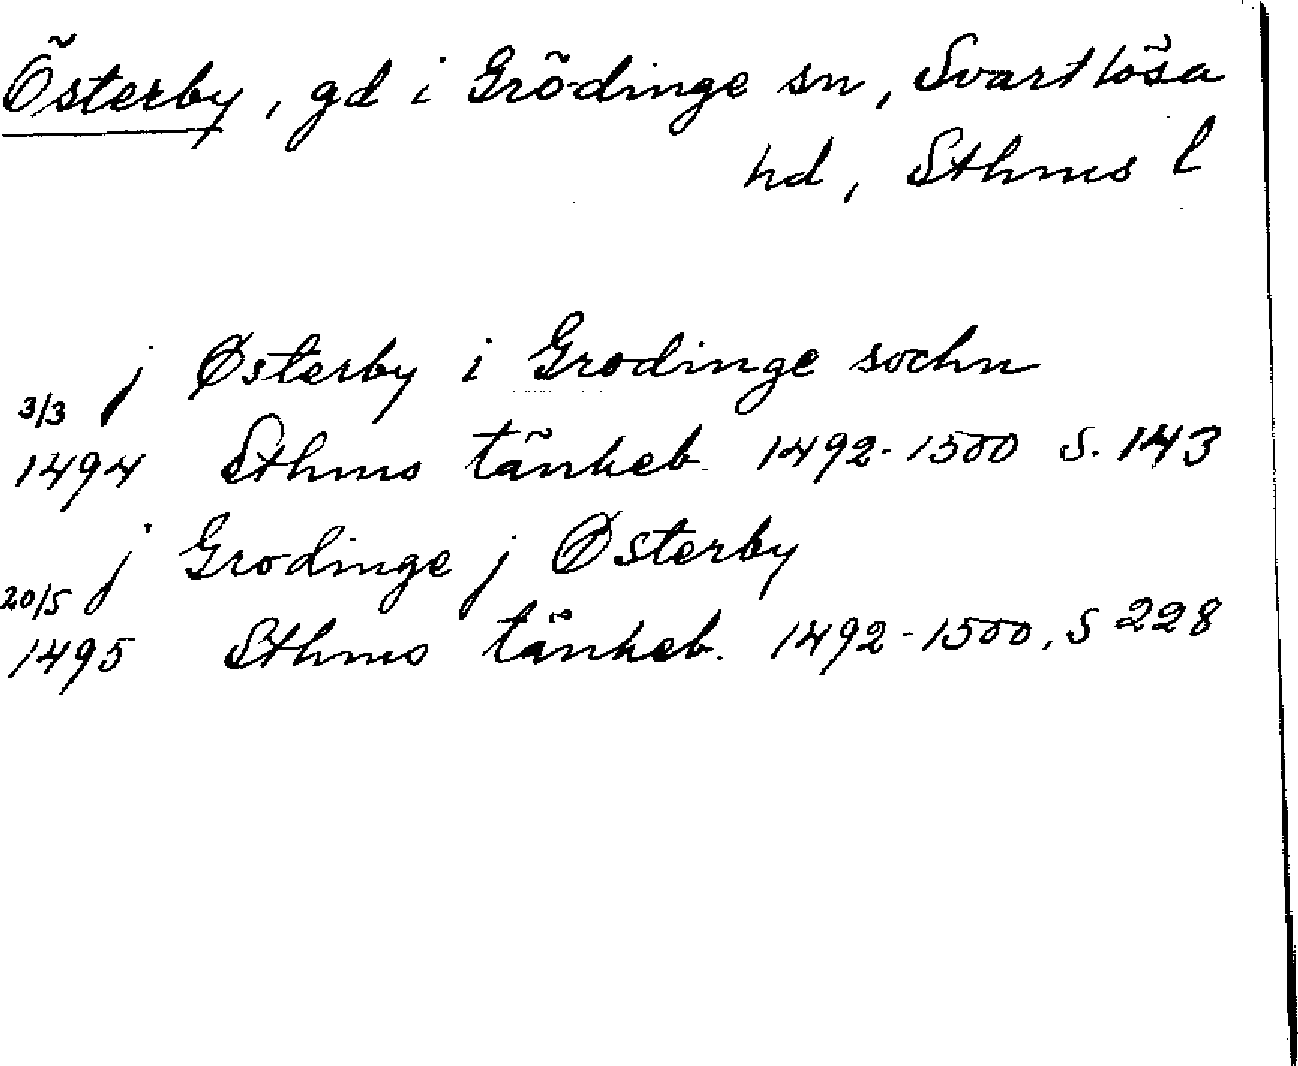 Österby, gd i Grödinge sn, Svartlösa
hd, Sthms l
j Østerby i Grodinge sochn
3/3
1494 Sthms tänkeb. 1492-1500 s. 143
j Grodinge j Østerby
20/5
1495 Sthms tänkeb. 1492-1500, s 228